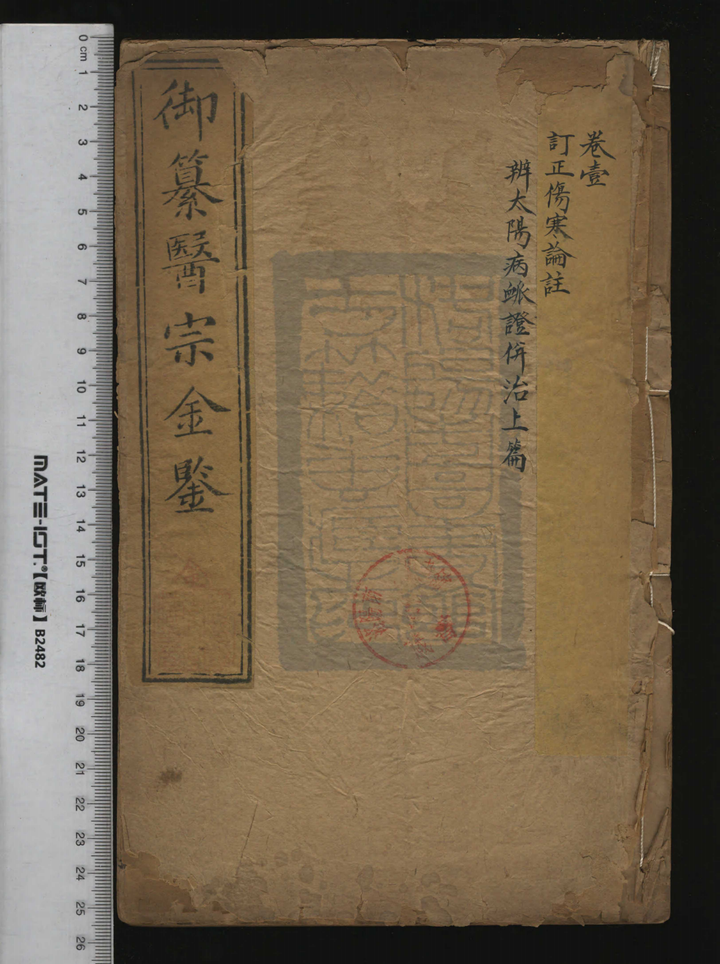 卷壹
訂正傷寒論註
辨太陽病脈證併治上篇
御纂醫宗金鑒
0 cm 1 2 3 4 5 6 7 8 9 10 11 12 13 14 15 16 17 18 19 20 21 22 23 24 25 26
MATE-IST.®【欧标】B2482